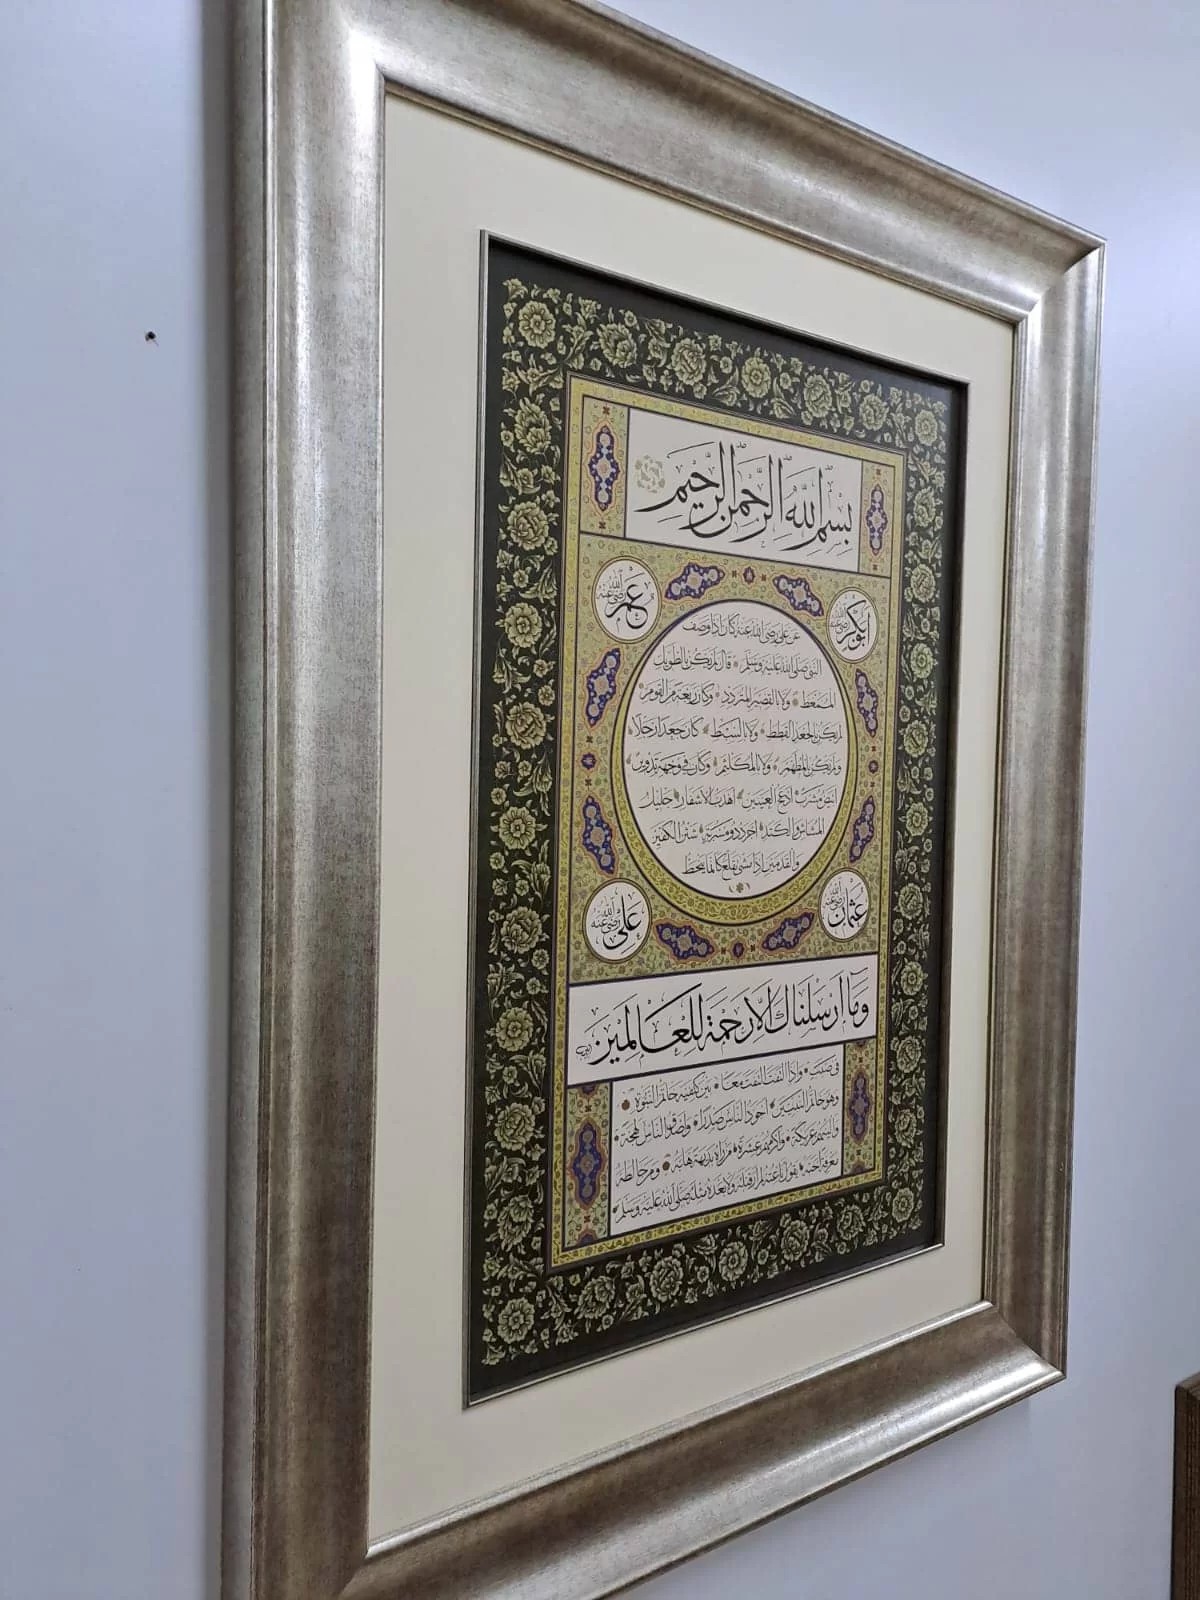 بِسْمِ اللّٰهِ الرَّحْمٰنِ الرَّحِيمِ
ابوبكر رضى الله عنه
عمر رضى الله عنه
عن على رضى الله عنه كان اذا وصف
النبى صلى الله عليه وسلم قال لم يكن بالطويل
الممغط ولا بالقصير المتردد وكان ربعة من القوم
لم يكن بالجعد القطط ولا بالسبط كان جعدا رجلا
ولم يكن بالمطهم ولا بالمكلثم وكان فى وجهه تدوير
ابيض مشرب ادعج العينين اهدب الاشفار جليل
المشاش والكتد اجرد ذو مسربة شثن الكفين
والقدمين اذا مشى تقلع كانما ينحط
عثمان رضى الله عنه
على رضى الله عنه
وَمَا اَرْسَلْنَاكَ اِلَّا رَحْمَةً لِلْعَالَمِينَ
فى صبب واذا التفت التفت معا بين كتفيه خاتم النبوة
وهو خاتم النبيين اجود الناس صدرا واصدق الناس لهجة
والينهم عريكة واكرمهم عشرة من راه بديهة هابه ومن خالطه
معرفة احبه يقول ناعته لم ار قبله ولا بعده مثله صلى الله عليه وسلم